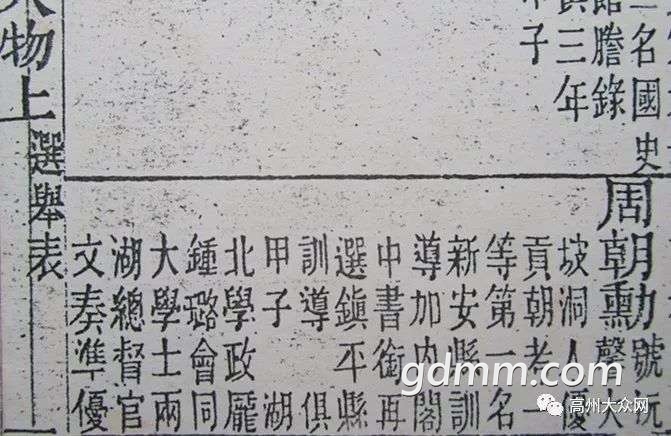 名國史
館謄錄
三年
子
周朝勳號
聲大
坡洞人優
貢朝考一
等第一名
新安縣訓
導加內閣
中書銜再
選鎮平縣
訓導 俱
甲子 湖
北學政龐
鍾璐會同
大學士兩
湖總督官
文奏準優
物上 選舉表
gdmm.com
高州大众网